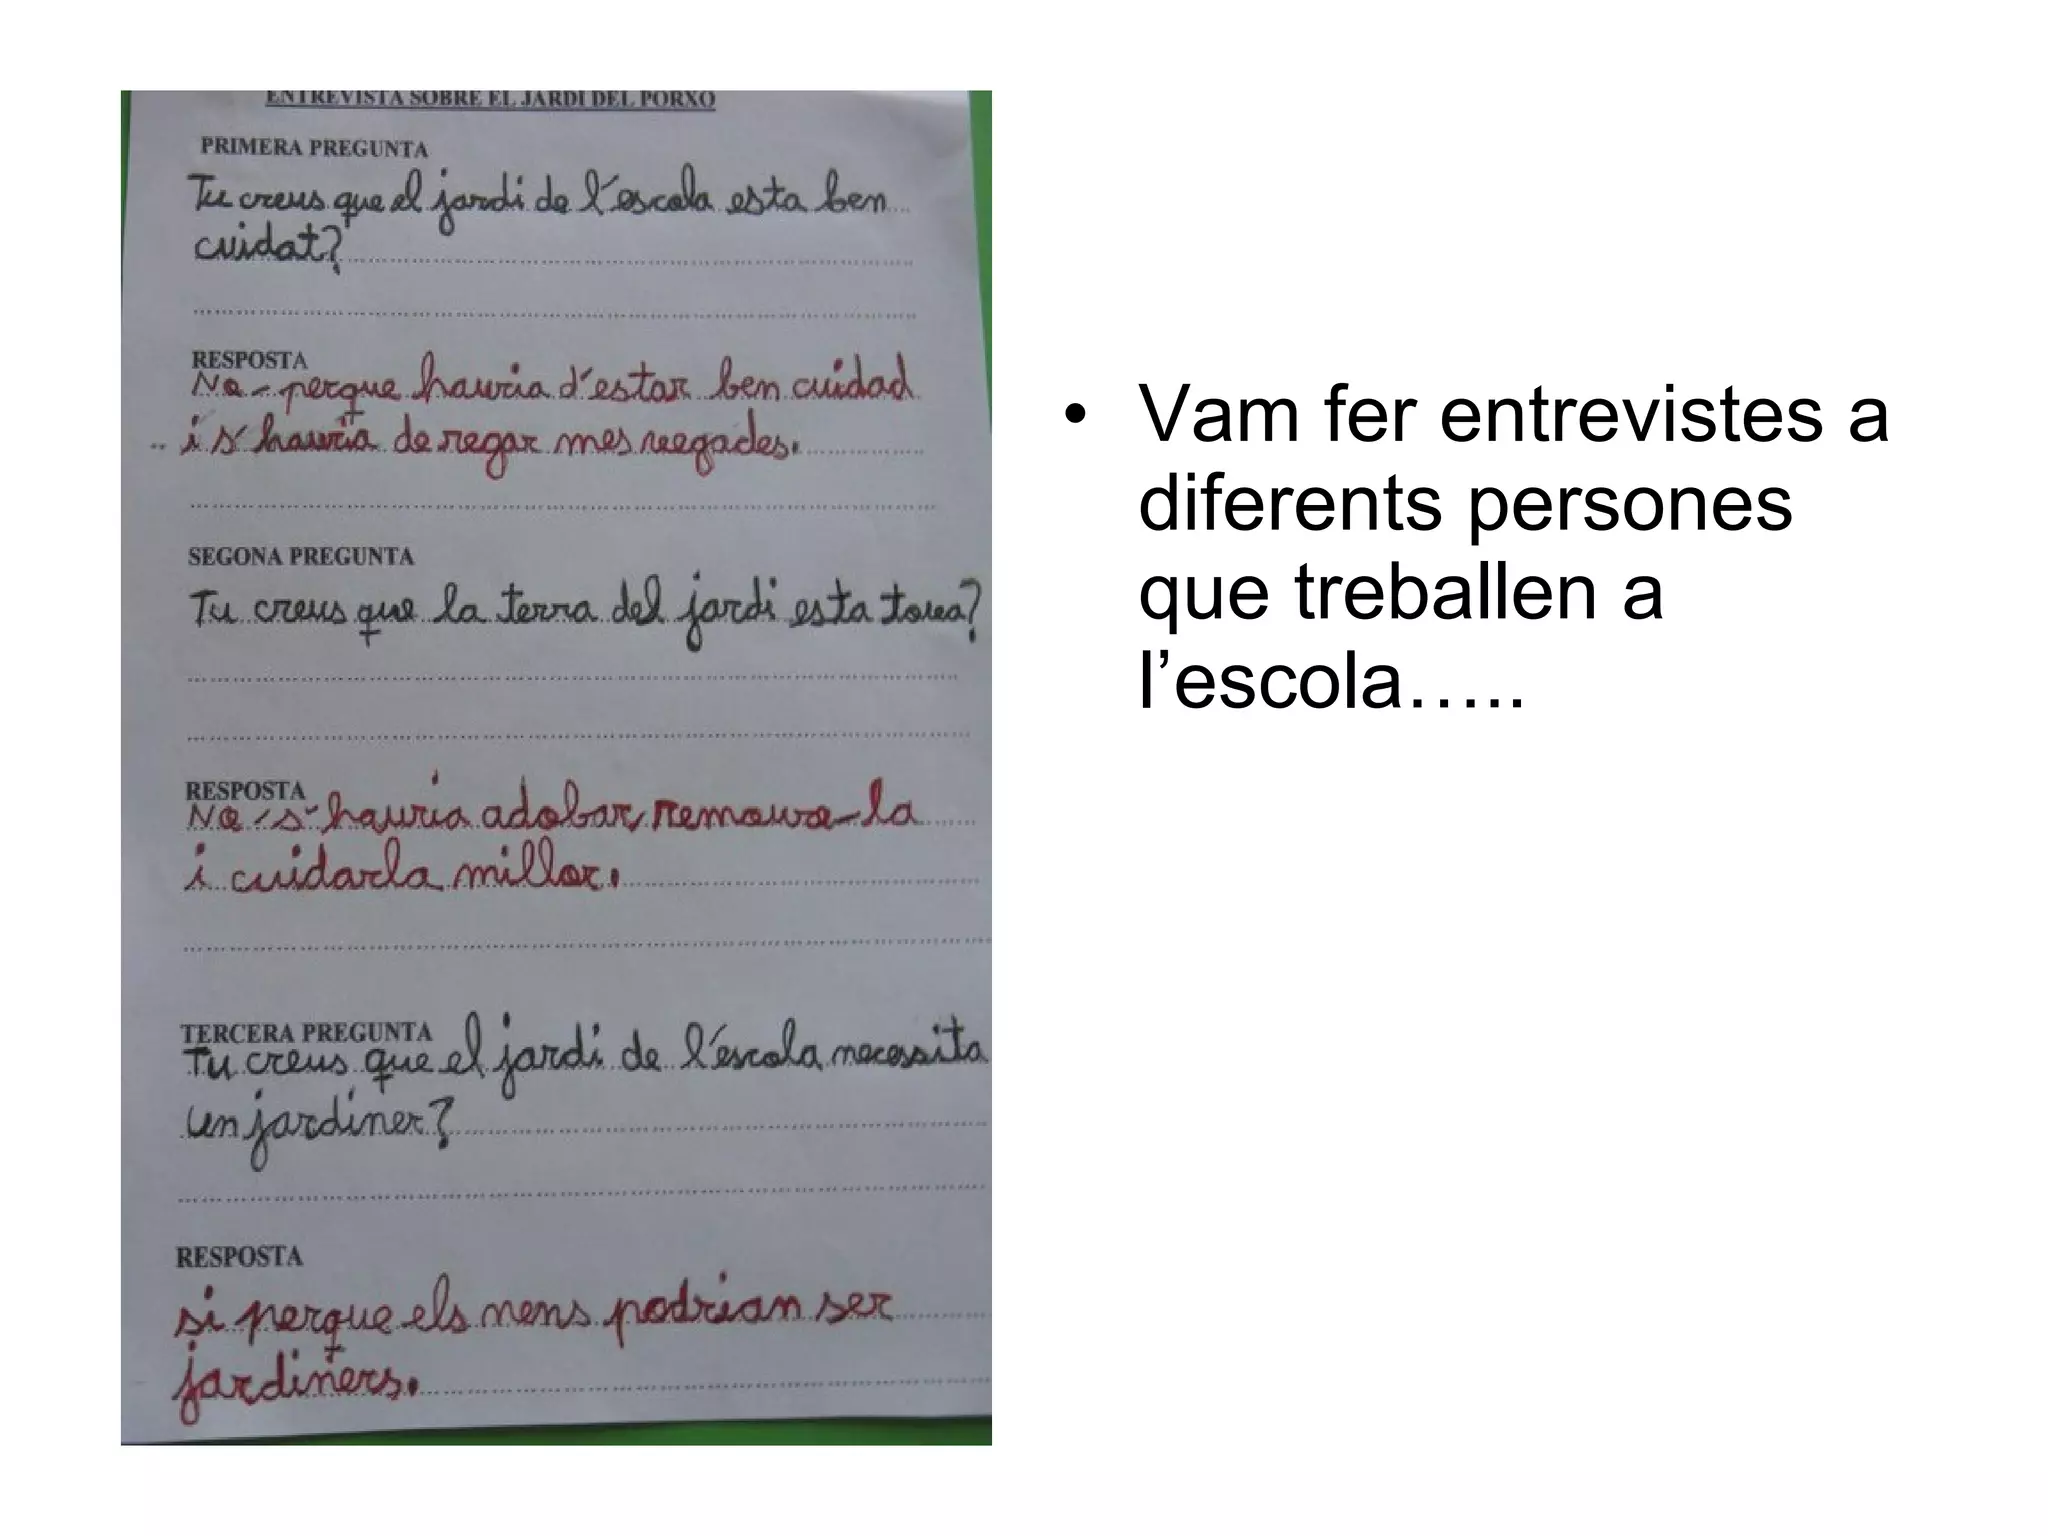 ENTREVISTA SOBRE EL JARDI DEL PORXO
PRIMERA PREGUNTA
Tu creus que el jardi de l'escola esta ben
cuidat?
RESPOSTA
No, perque hauria d'estar ben cuidad
i s'hauria de regar mes vegades.
SEGONA PREGUNTA
Tu creus que la terra del jardi esta tova?
RESPOSTA
No, s'hauria adobar, remoure-la
i cuidarla millor.
TERCERA PREGUNTA
Tu creus que el jardi de l'escola necessita
un jardiner?
RESPOSTA
si perque els nens podrian ser
jardiners.
• Vam fer entrevistes a
diferents persones
que treballen a
l’escola…..